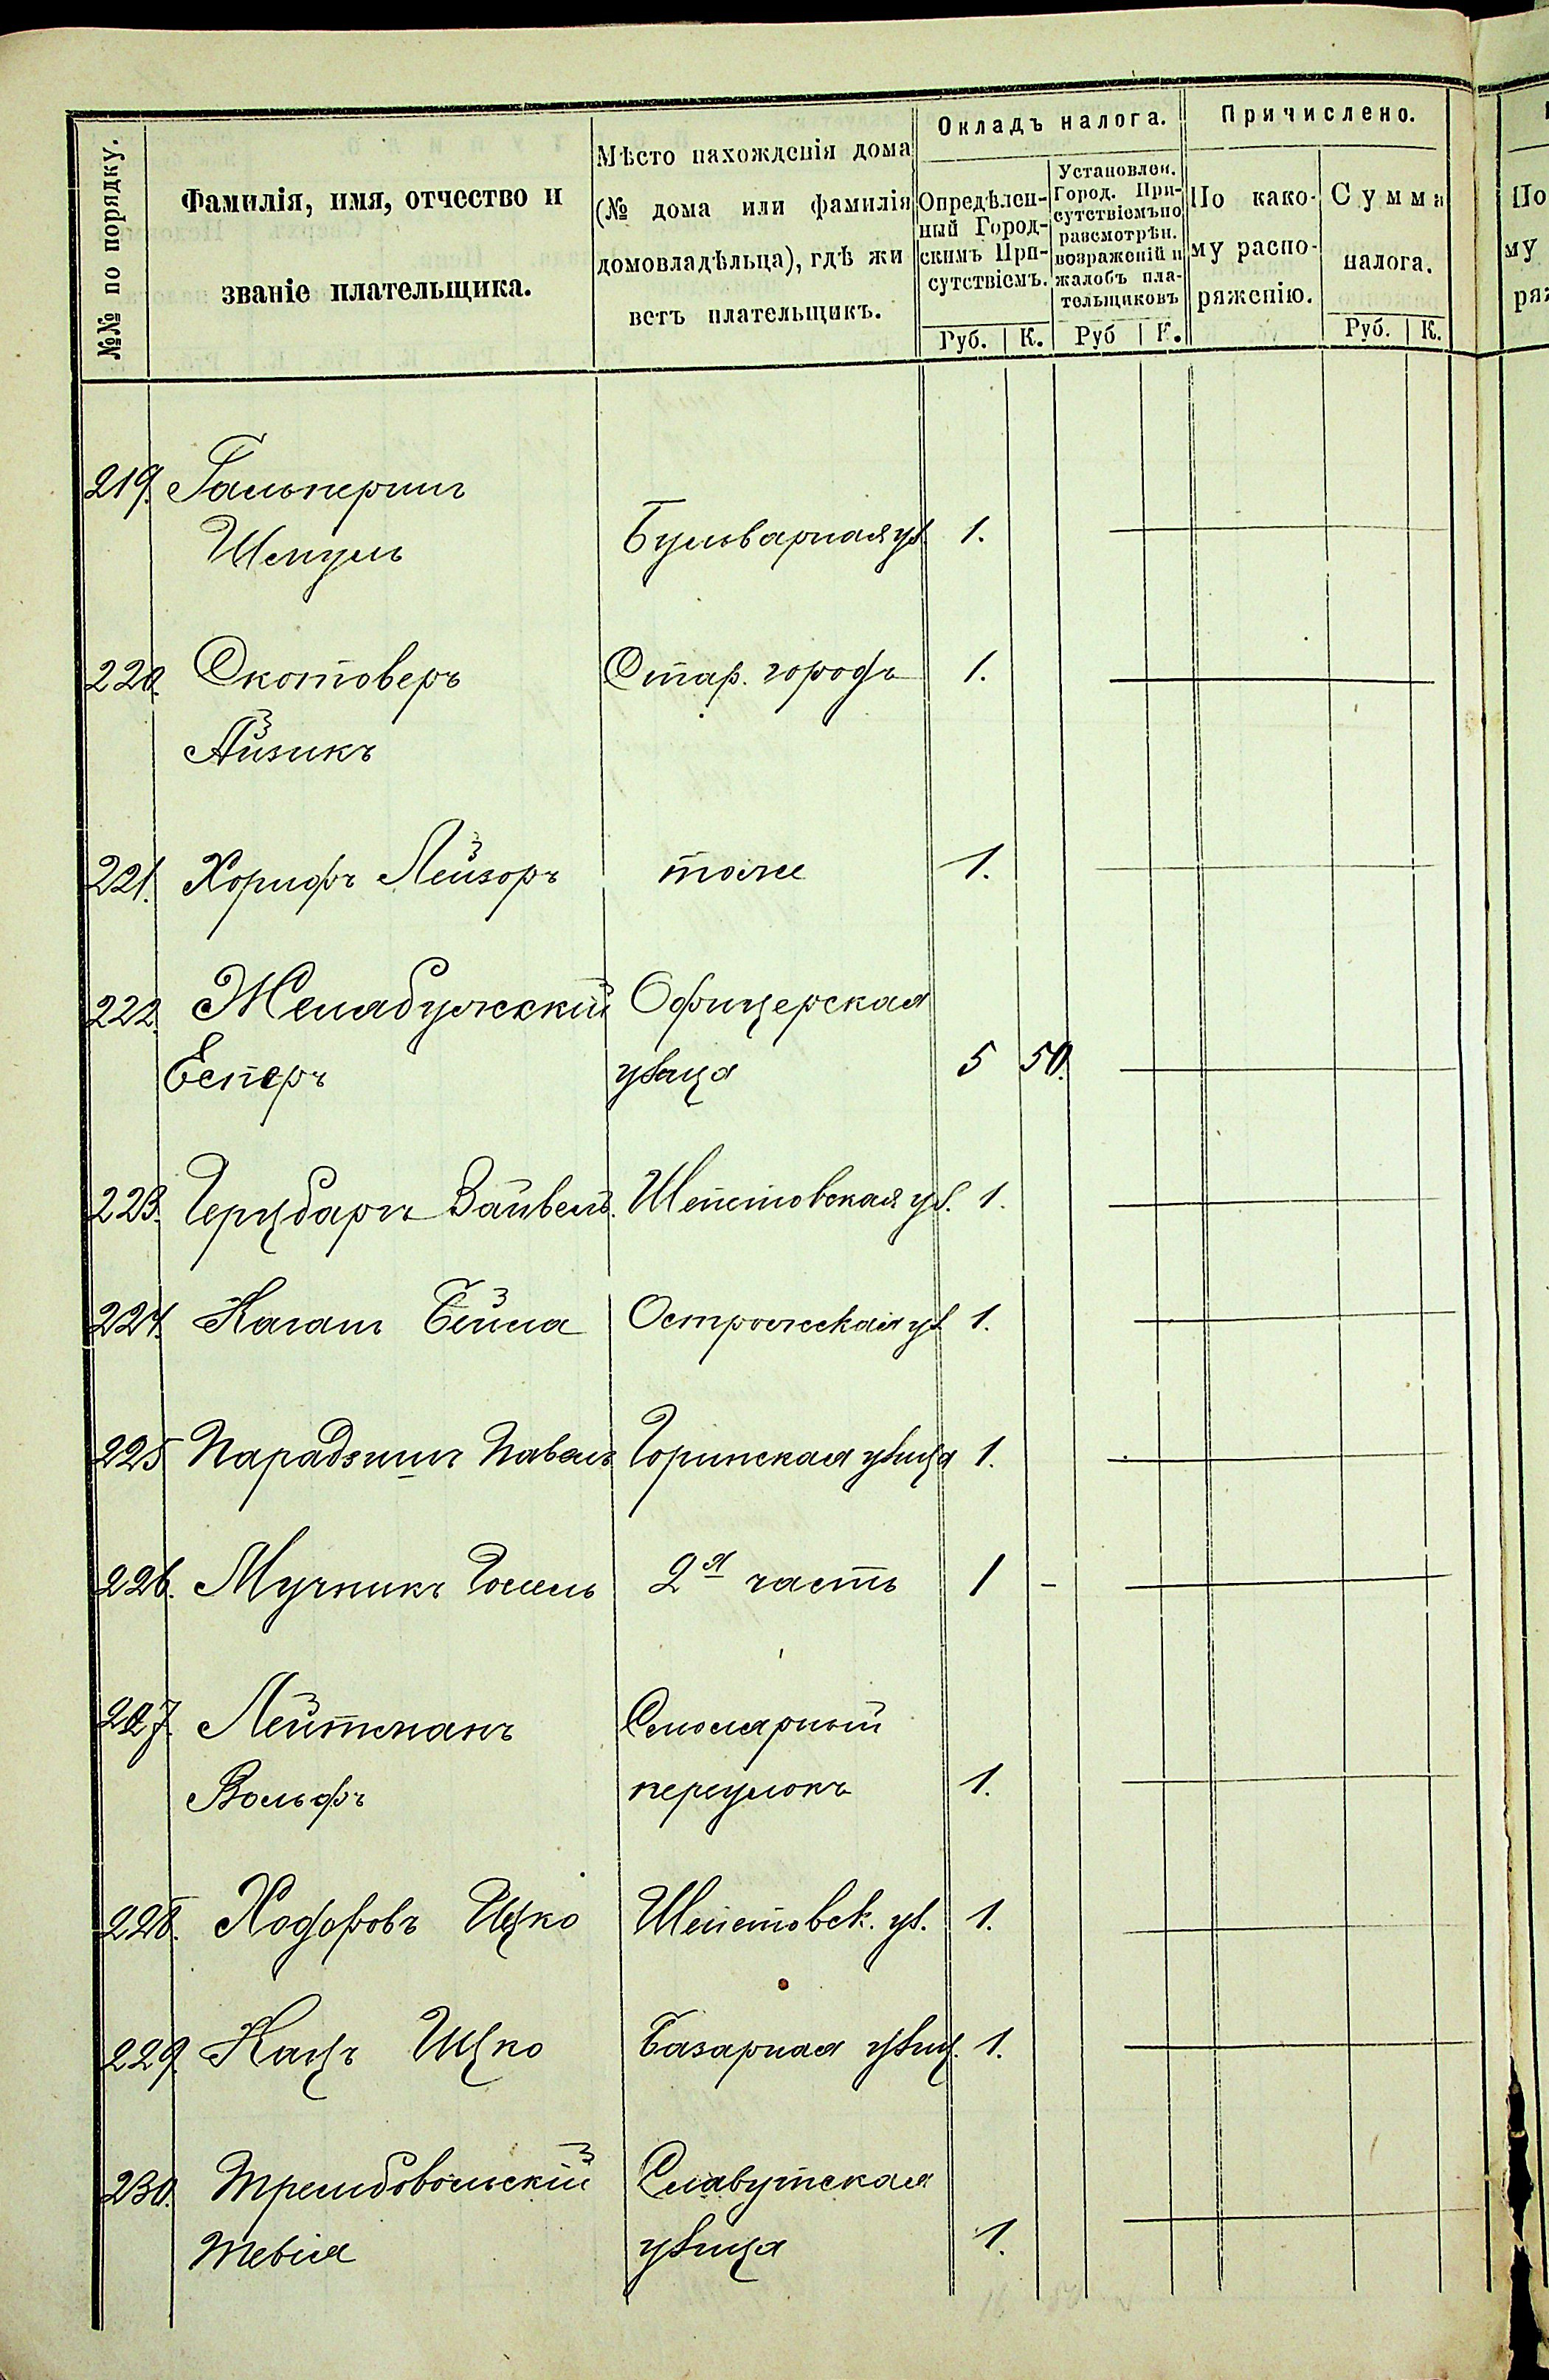 №№ по порядку.
Фамилія, имя, отчество и
званіе плательщика.
Мѣсто нахожденія дома
(№ дома или фамилія
домовладѣльца), гдѣ жи
ветъ плательщикъ.
Окладъ налога.
Опредѣлен-
ный Город-
скимъ При-
сутствіемъ.
Руб. К.
Установлен.
Город. При-
сутствіемъ по
разсмотрѣн.
возраженій и
жалобъ пла-
тельщиковъ
Руб К.
Причислено.
По како-
му распо-
ряженію.
Сумма
налога.
Руб. К.
219. Гальперинъ
Шмуль Бульварная ул. 1.
220. Скотоверъ Стар. городъ 1.
Айзикъ
221. Хорифъ Лейзоръ тоже 1.
222. Желябужскій Офицерская
Есперъ улица 5 50.
223. Герцбаръ Вайвель. Шепетовская ул. 1.
224. Каганъ Бейла Острожская ул. 1.
225 Парадзинъ Павелъ Горинская улица 1.
226. Мучникъ 2я часть 1 -
227. Лейтманъ Столярный
Вольфъ переулокъ 1.
228. Ходоровъ Ицко Шепетовск. ул. 1.
229. Кацъ Ицко Базарная улиц. 1.
230. Трембовольскій Славутская
Тевія улица 1.
По
му
ряж